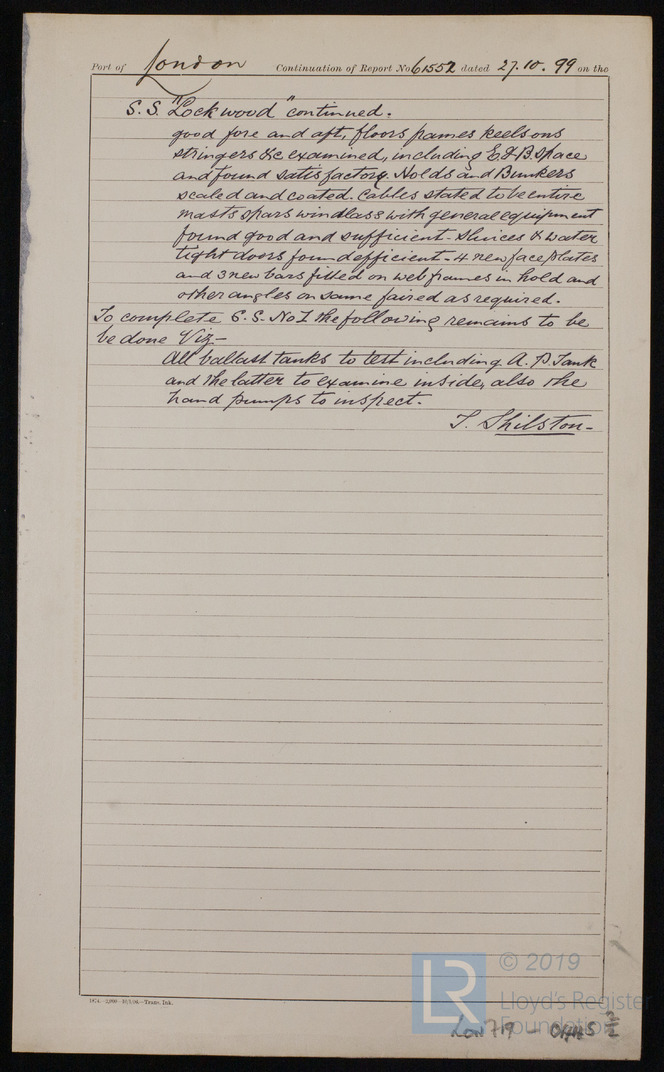 Port of London Continuation of Report No 61552 dated 27.10.99 on the
S.S. "Lockwood" continued.
good fore and aft, floors frames keelsons
stringers &c examined, including E & B. Space
and found satisfactory. Holds and Bunkers
scaled and coated. Cables stated to be entire
masts spars windlass with general equipment
found good and sufficient - Sluices & water
tight doors found efficient - 4 new face plates
and 3 new bars fitted on web frames in hold and
other angles on same faired as required.
To complete S.S. No 1 the following remains to be
be done Viz -
All ballast tanks to test including A. P. Tank
and the latter to examine inside, also the
hand pumps to inspect.
T. Shilston -
© 2019
LR Lloyd's Register
Foundation
LON719 -